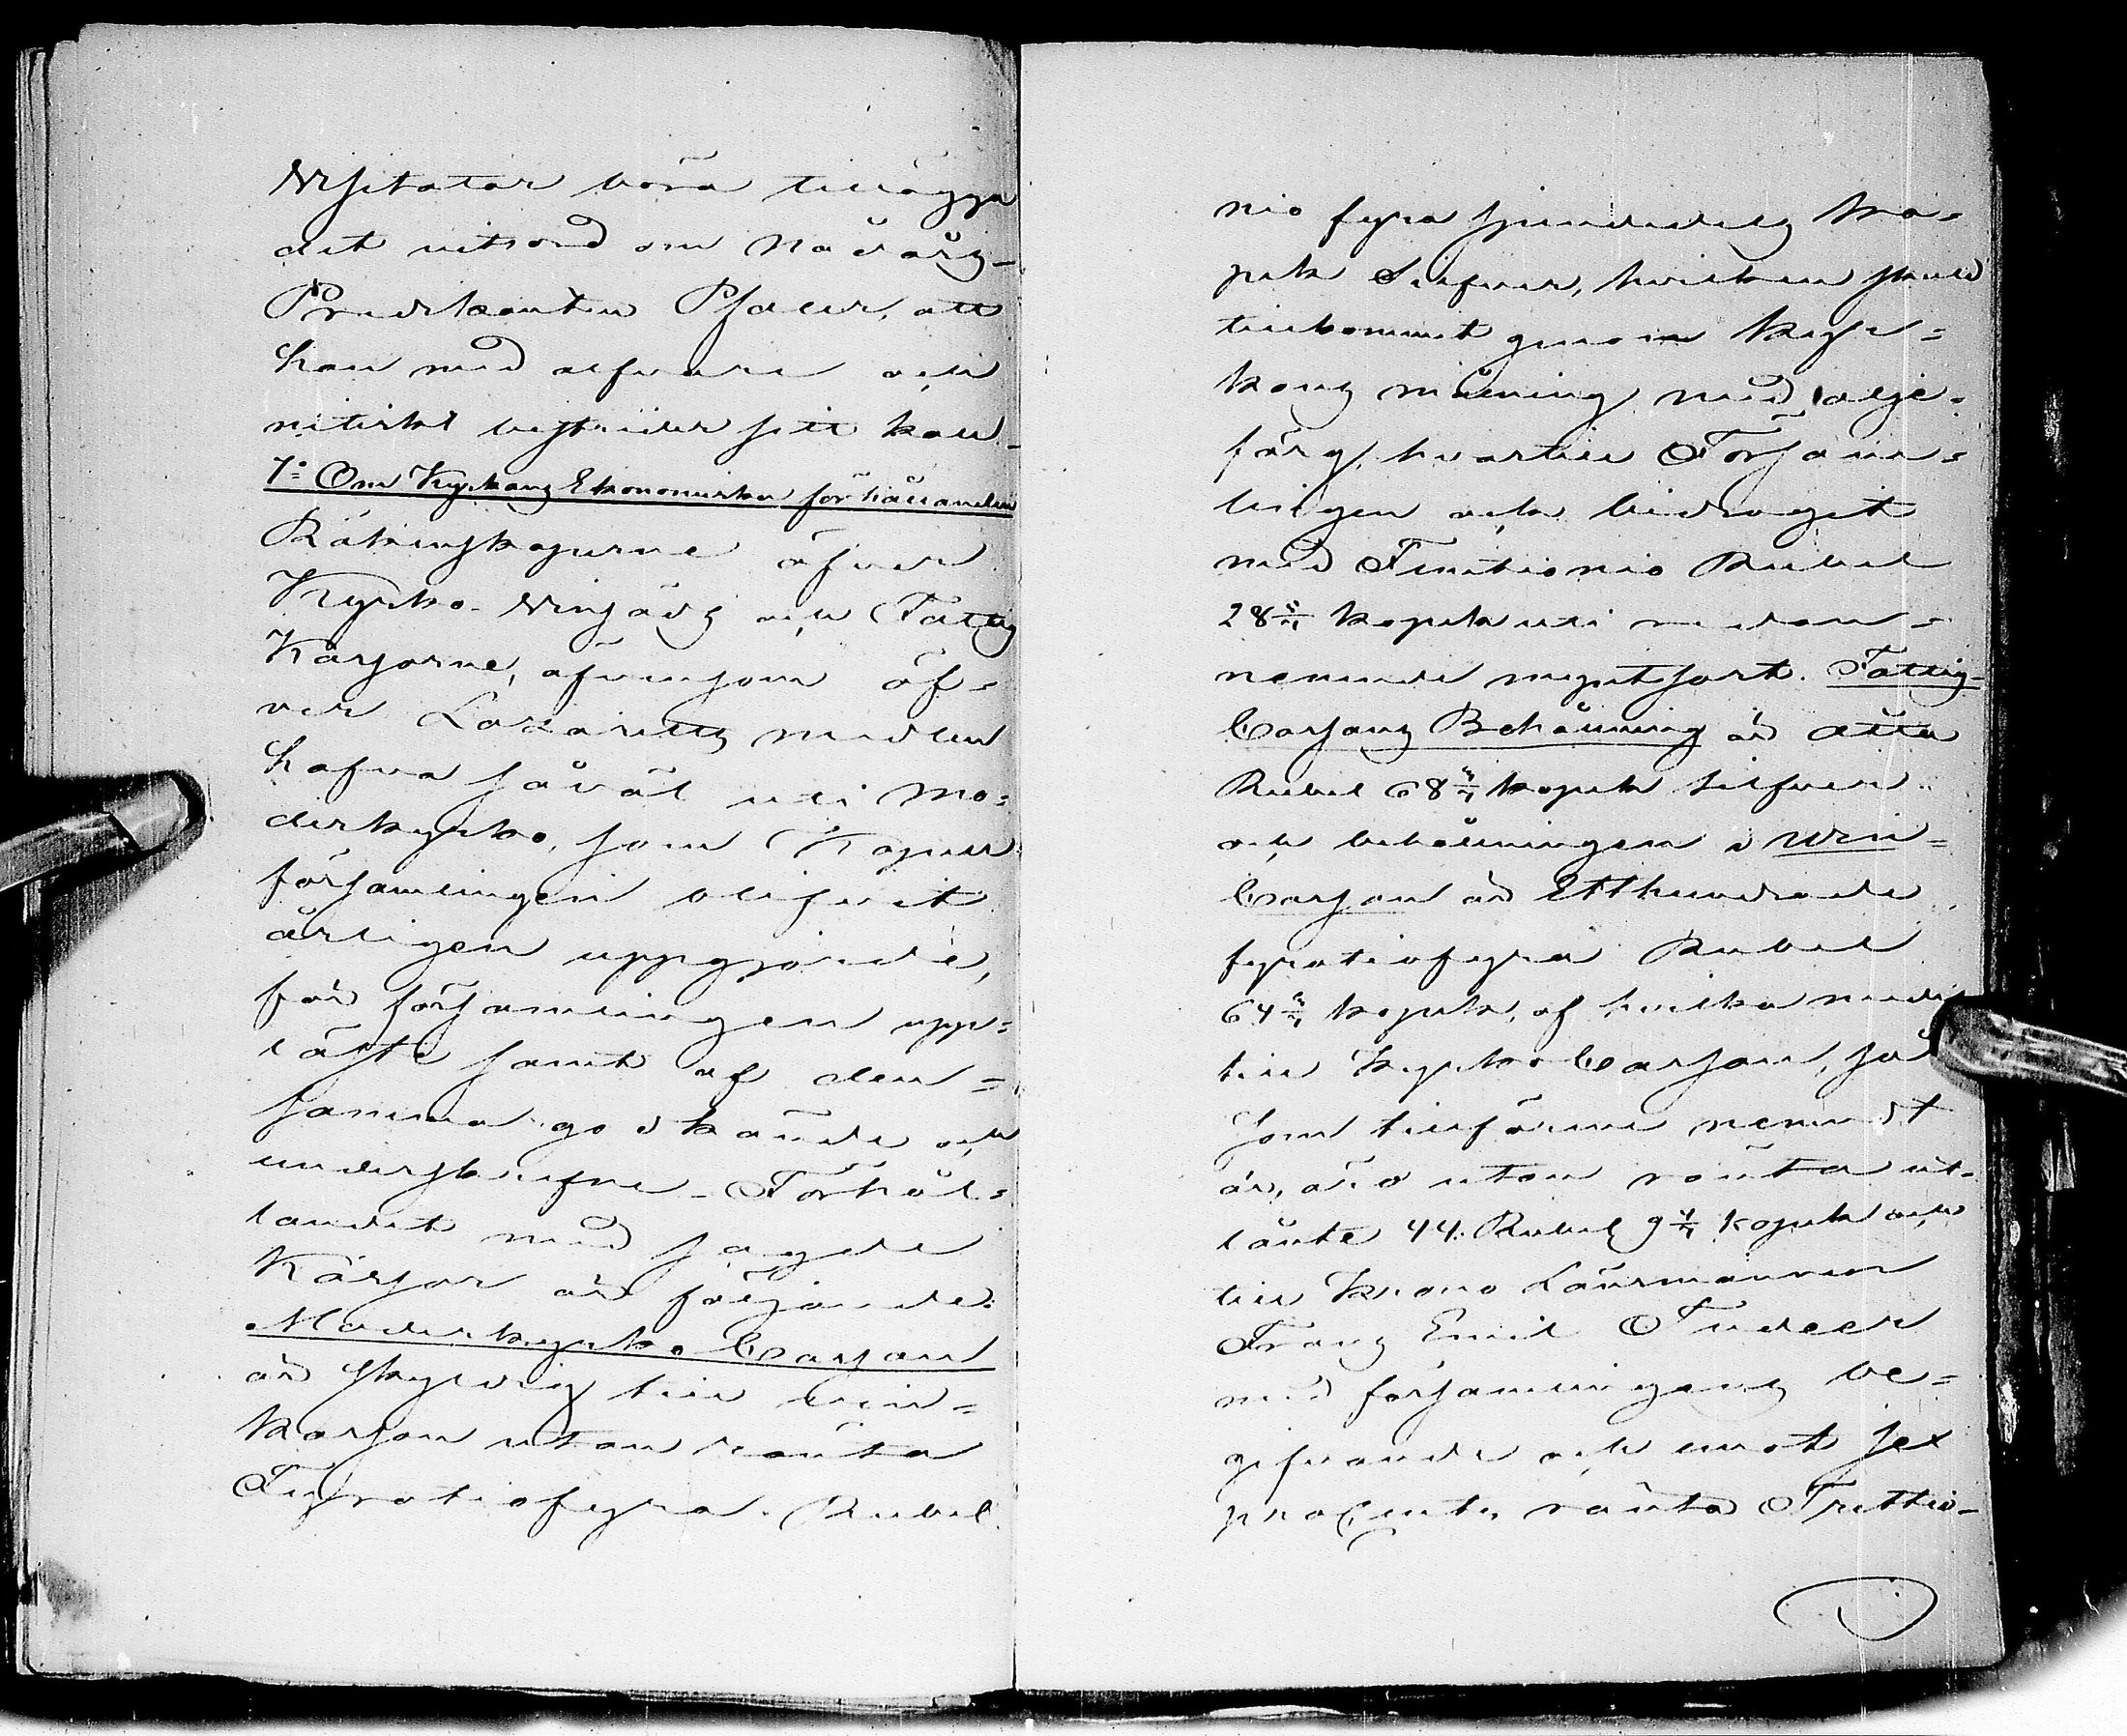 Visitator böra tillägga
det vitsord om Nådårs-
Predikanten Pfaler, att
han med alfvare och
nitiskt bestrider sitt kall.
7:o Om Kyrkans Ekonomiska förhållanden
Räkenskaperne öfver
Kyrko- Vinsäds och Fattig
Kassorne, äfvensom öf-
ver Lazaretts medlen
hafva såväl uti Mo-
derkyrko, som Kapell
församlingen blifvit
årligen uppgjorde,
för församlingen upp-
läste samt af den-
samma godkände och
underskrifne. Förhål-
landet med sagde
Kassor är följande:
Moderkyrko Cassan
är skyldig till vin-
kassan utan ränta
Fyratiofyra Rubel
nio fyra sjundedels ko-
pek Silfver, hvilken skuld
tillkommit genom kyr-
kans målning med olje-
färg, hvartill Försam-
lingen och bidragit
med Femtionio Rubel
28 4/7 kopek uti nedan-
nemnde myntsort. Fattig-
Cassans Behållning är åtta
Rubel 68 4/7 kopek silfver
och behållningen i Vin-
Cassan är Etthundrade
fyratiofyra Rubel
64 4/7 kopek, af hvilka medel
till kyrko Cassan, så
som tillförene nemndt
är, äro utan ränta ut-
lånte 44 Rubel 9 4/7 kopek och
till Krono Länsmannen
Frans Emil Tudeer
med församlingens be-
gifvande och emot sex
procents ränta Trettio-